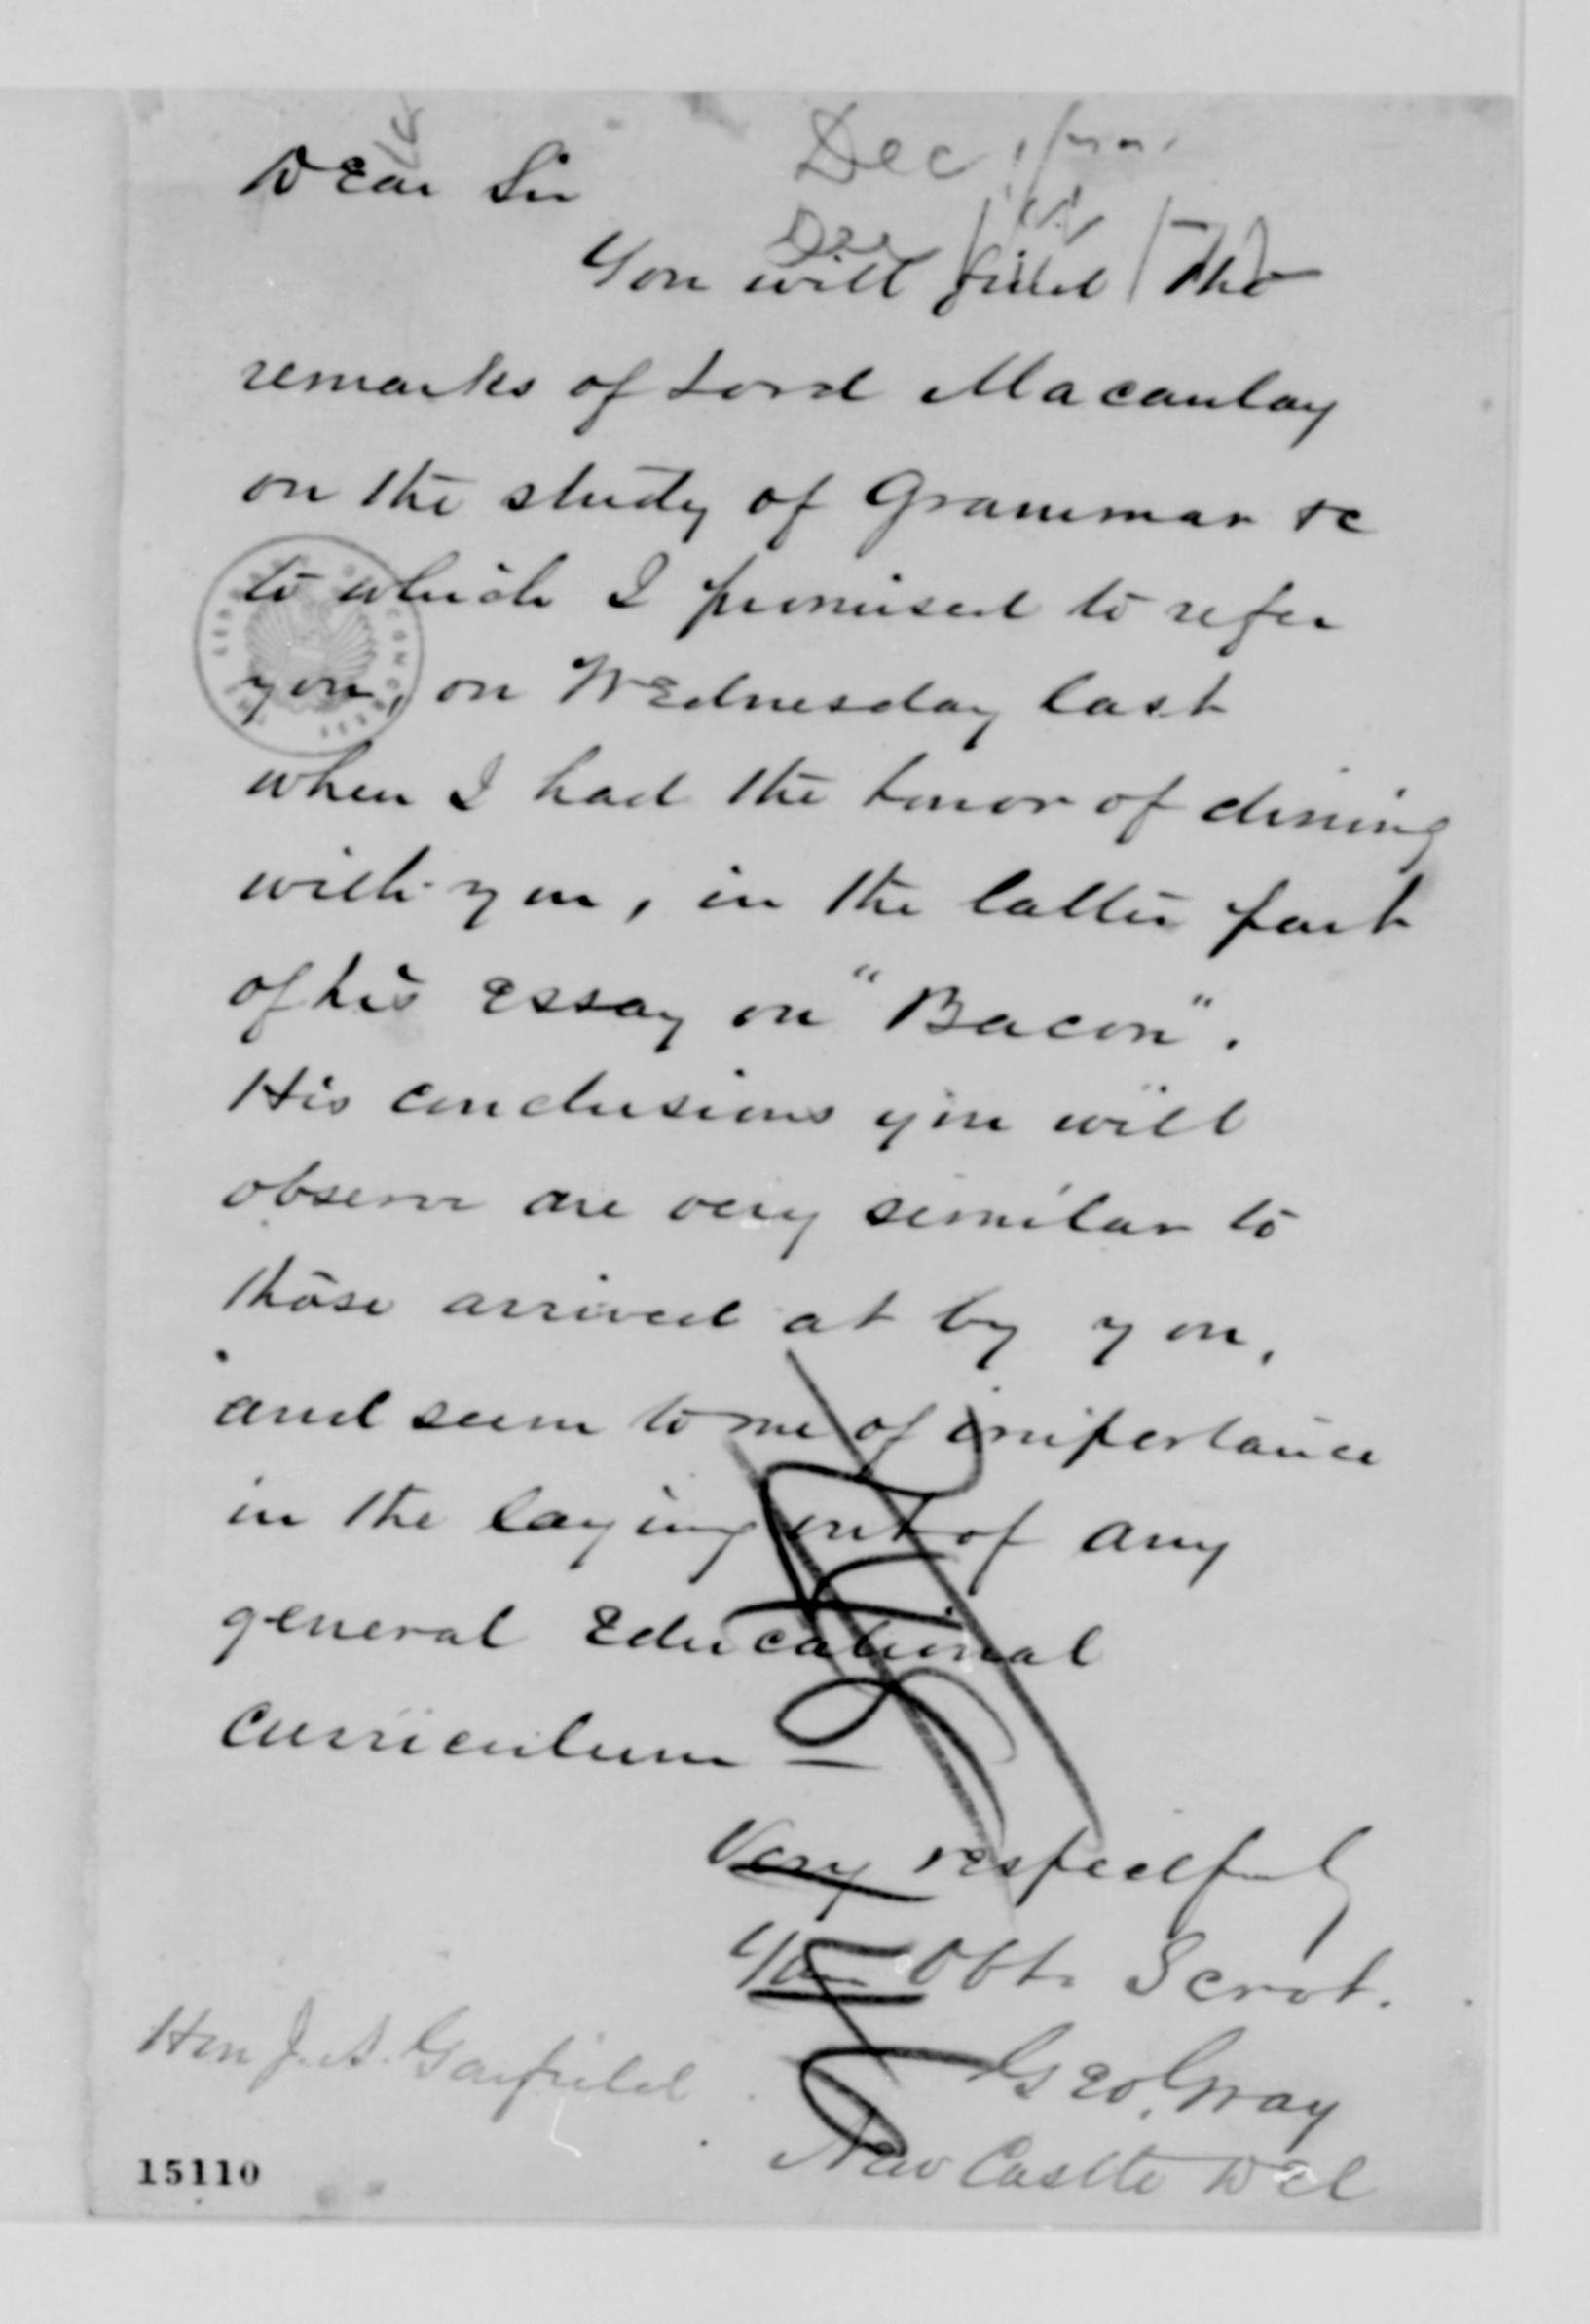 Dec
Dear Sir
Dec
You will find the
remarks of Lord Macaulay
on the study of Grammar &c
to which I promised to refer
you, on Wednesday last
when I had the honor of dining
with you, in the latter part
of his essay on "Bacon".
His conclusions you will
observe are very similar to
those arrived at by you,
and seem to me of importance
in the laying out of any
general Educational
curriculum —
Very respectfully
Your Obt. Servt.
Geo. Gray
New Castle Del
Hon J. A. Garfield
15110